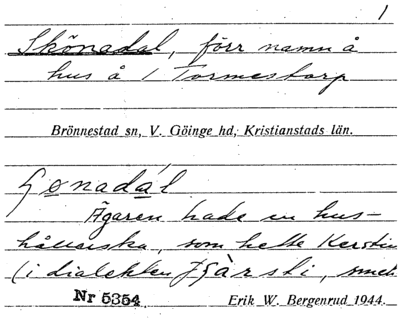 1
Skönadal, förr namn å
hus å 1 Tormestorp
Brönnestad sn, V. Göinge hd, Kristianstads län.
Ägaren hade en hus-
hållerska, som hette Kerstin
(i dialekten
Nr 5354
Erik W. Bergenrud 1944.